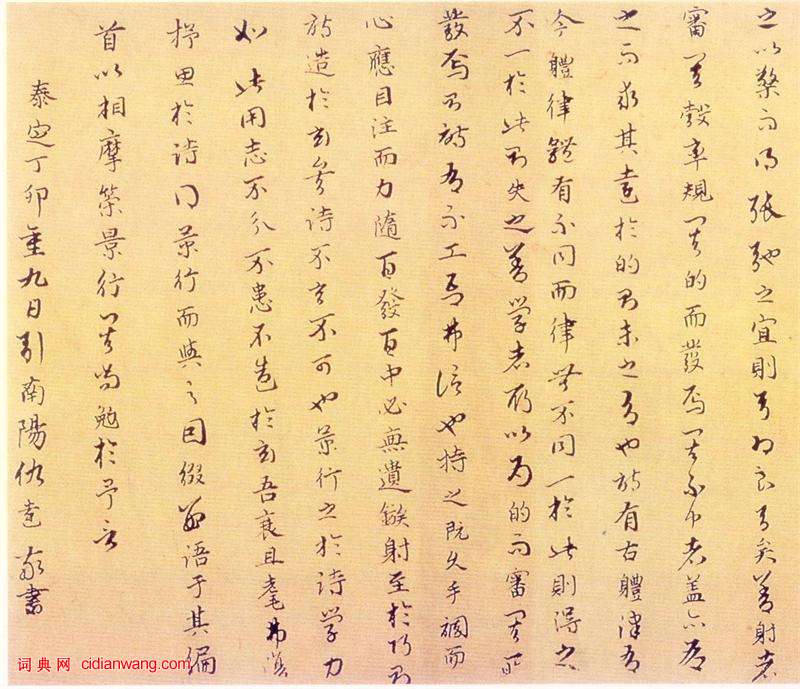 之以檠而得張弛之宜則可為良弓矣善射者
審其彀率規其的而發焉其不中者蓋
之而求其遠於的則未之有也詩有古體律
今體律體有不同而律無不同一於此則得之
不一於此則失之善學者所以為的而審其所
發焉而詩有不工焉弗信也持之既久手調而
心應目注而力隨百發百中必無遺鏃射至於巧則
詩造於玄矣詩不玄不可也景行之於詩學力
如此用志不分不患不造於玄吾衰且耄弗復
抒思於詩景行而與之因綴語于其編
首以相摩策景行其尚勉於予言
泰定丁卯重九日引南陽仇遠敬書
词典网 cidianwang.com